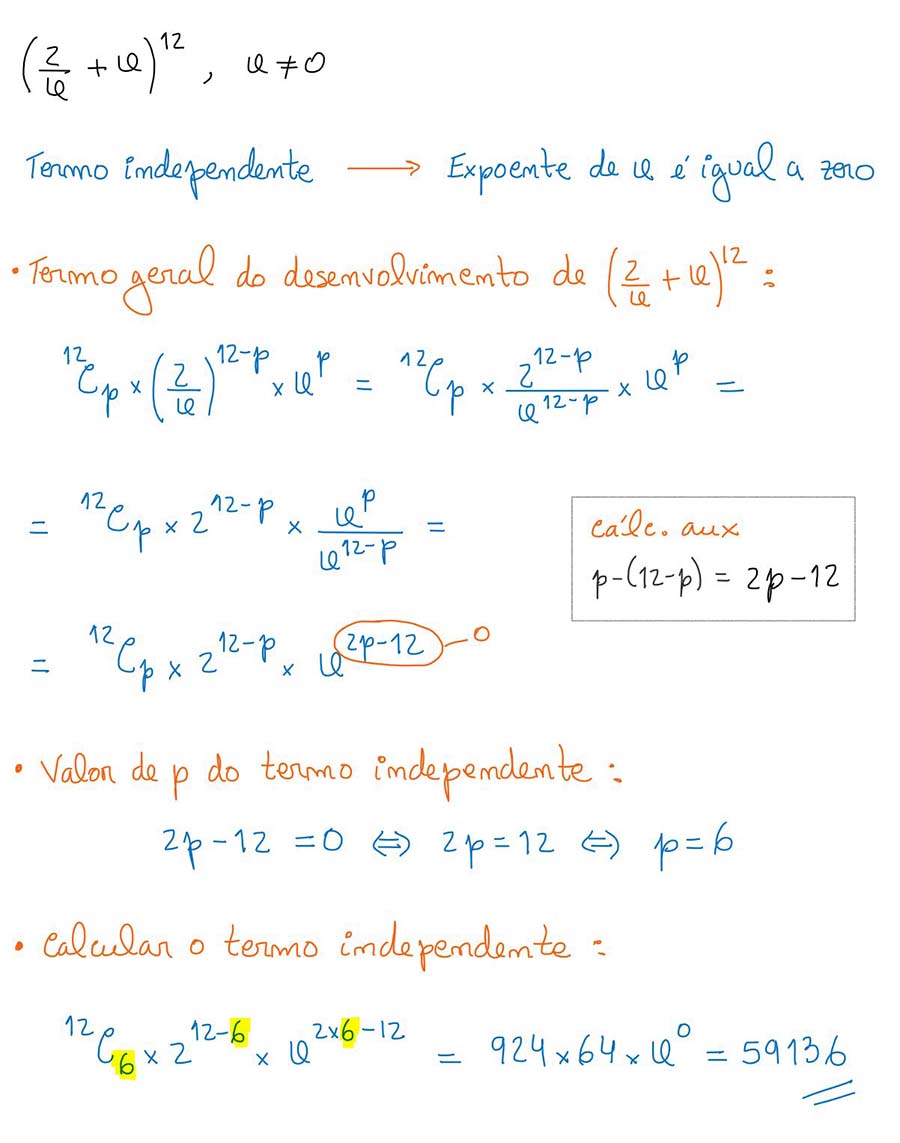 (2/x + x)^12 , x ≠ 0
Termo independente ⟶ Expoente de x é igual a zero
• Termo geral do desenvolvimento de (2/x + x)^12 :
^12C_p × (2/x)^(12-p) × x^p = ^12C_p × 2^(12-p)/x^(12-p) × x^p =
= ^12C_p × 2^(12-p) × x^p/x^(12-p) =
cálc. aux
p-(12-p) = 2p-12
= ^12C_p × 2^(12-p) × x^(2p-12) – 0
• Valor de p do termo independente :
2p-12 = 0 ⇔ 2p = 12 ⇔ p = 6
• Calcular o termo independente :
^12C_6 × 2^(12-6) × x^(2×6-12) = 924 × 64 × x^0 = 59136